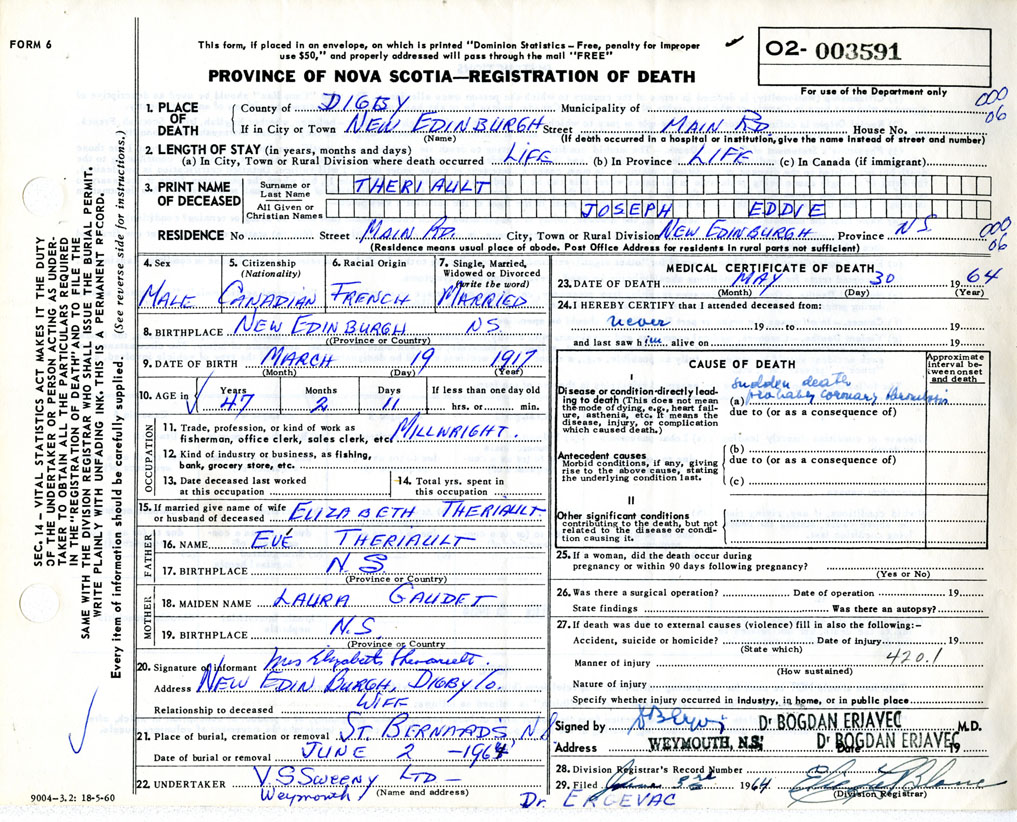 FORM 6
This form, if placed in an envelope, on which is printed "Dominion Statistics – Free, penalty for improper
use $50," and properly addressed will pass through the mail "FREE"
O2- 003591
For use of the Department only
PROVINCE OF NOVA SCOTIA—REGISTRATION OF DEATH
000
06
1. PLACE OF DEATH County of DIGBY Municipality of
If in City or Town NEW EDINBURGH Street MAIN RD. House No.
(Name) (If death occurred in a hospital or institution, give the name instead of street and number)
2. LENGTH OF STAY (in years, months and days)
(a) In City, Town or Rural Division where death occurred LIFE (b) In Province LIFE (c) In Canada (if immigrant)
3. PRINT NAME OF DECEASED Surname or Last Name THERIAULT
All Given or Christian Names JOSEPH EDDIE
RESIDENCE No Street MAIN RD. City, Town or Rural Division NEW EDINBURGH Province N.S.
000
06
(Residence means usual place of abode. Post Office Address for residents in rural parts not sufficient)
4. Sex MALE
5. Citizenship (Nationality) CANADIAN
6. Racial Origin FRENCH
7. Single, Married, Widowed or Divorced (write the word) MARRIED
8. BIRTHPLACE NEW EDINBURGH NS.
(Province or Country)
9. DATE OF BIRTH MARCH 19 1917
(Month) (Day) (Year)
10. AGE in Years 47 Months 2 Days 11 If less than one day old hrs. or min.
OCCUPATION
11. Trade, profession, or kind of work as
fisherman, office clerk, sales clerk, etc MILLWRIGHT.
12. Kind of industry or business, as fishing,
bank, grocery store, etc.
13. Date deceased last worked
at this occupation
14. Total yrs. spent in
this occupation
15. If married give name of wife
or husband of deceased ELIZABETH THERIAULT
FATHER
16. NAME EVÉ THERIAULT
17. BIRTHPLACE N.S
(Province or Country)
MOTHER
18. MAIDEN NAME LAURA GAUDET
19. BIRTHPLACE N.S.
(Province or Country
20. Signature of informant Mrs Elizabeth Theriault.
Address NEW EDINBURGH, DIGBY Co.
Relationship to deceased WIFE
21. Place of burial, cremation or removal ST BERNAADS N.S
Date of burial or removal JUNE 2 -1964
22. UNDERTAKER V.S SWEENY LTD –
Weymouth (Name and address)
9004–3.2: 18-5-60
MEDICAL CERTIFICATE OF DEATH
23. DATE OF DEATH MAY 30 1964
(Month) (Day) (Year)
24. I HEREBY CERTIFY that I attended deceased from:
never 19 to 19
and last saw him alive on 19
CAUSE OF DEATH
Approximate interval between onset and death
I
Disease or condition directly leading to death (This does not mean the mode of dying, e.g., heart failure, asthenia, etc. It means the disease, injury, or complication which caused death.)
sudden death
(a) probably coronary thrombosis
due to (or as a consequence of)
Antecedent causes
Morbid conditions, if any, giving rise to the above cause, stating the underlying condition last.
(b)
due to (or as a consequence of)
(c)
II
Other significant conditions
contributing to the death, but not related to the disease or condition causing it.
25. If a woman, did the death occur during
pregnancy or within 90 days following pregnancy?
(Yes or No)
26. Was there a surgical operation? Date of operation 19
State findings Was there an autopsy?
27. If death was due to external causes (violence) fill in also the following:–
Accident, suicide or homicide? Date of injury 19
(State which)
420.1
Manner of injury
(How sustained)
Nature of injury
Specify whether injury occurred in industry, in home, or in public place
Signed by Dr BOGDAN ERJAVEC M.D.
Address WEYMOUTH, N.S. Date Dr BOGDAN ERJAVEC 19
28. Division Registrar's Record Number
29. Filed June 3rd 1964
(Division Registrar)
Dr. ERGEVAC
SEC. 14 – VITAL STATISTICS ACT MAKES IT THE DUTY
OF THE UNDERTAKER OR PERSON ACTING AS UNDER-
TAKER TO OBTAIN ALL THE PARTICULARS REQUIRED
IN THE "REGISTRATION OF DEATH" AND TO FILE THE
SAME WITH THE DIVISION REGISTRAR WHO SHALL ISSUE THE BURIAL PERMIT.
WRITE PLAINLY WITH UNFADING INK. THIS IS A PERMANENT RECORD.
Every item of information should be carefully supplied. (See reverse side for instructions.)